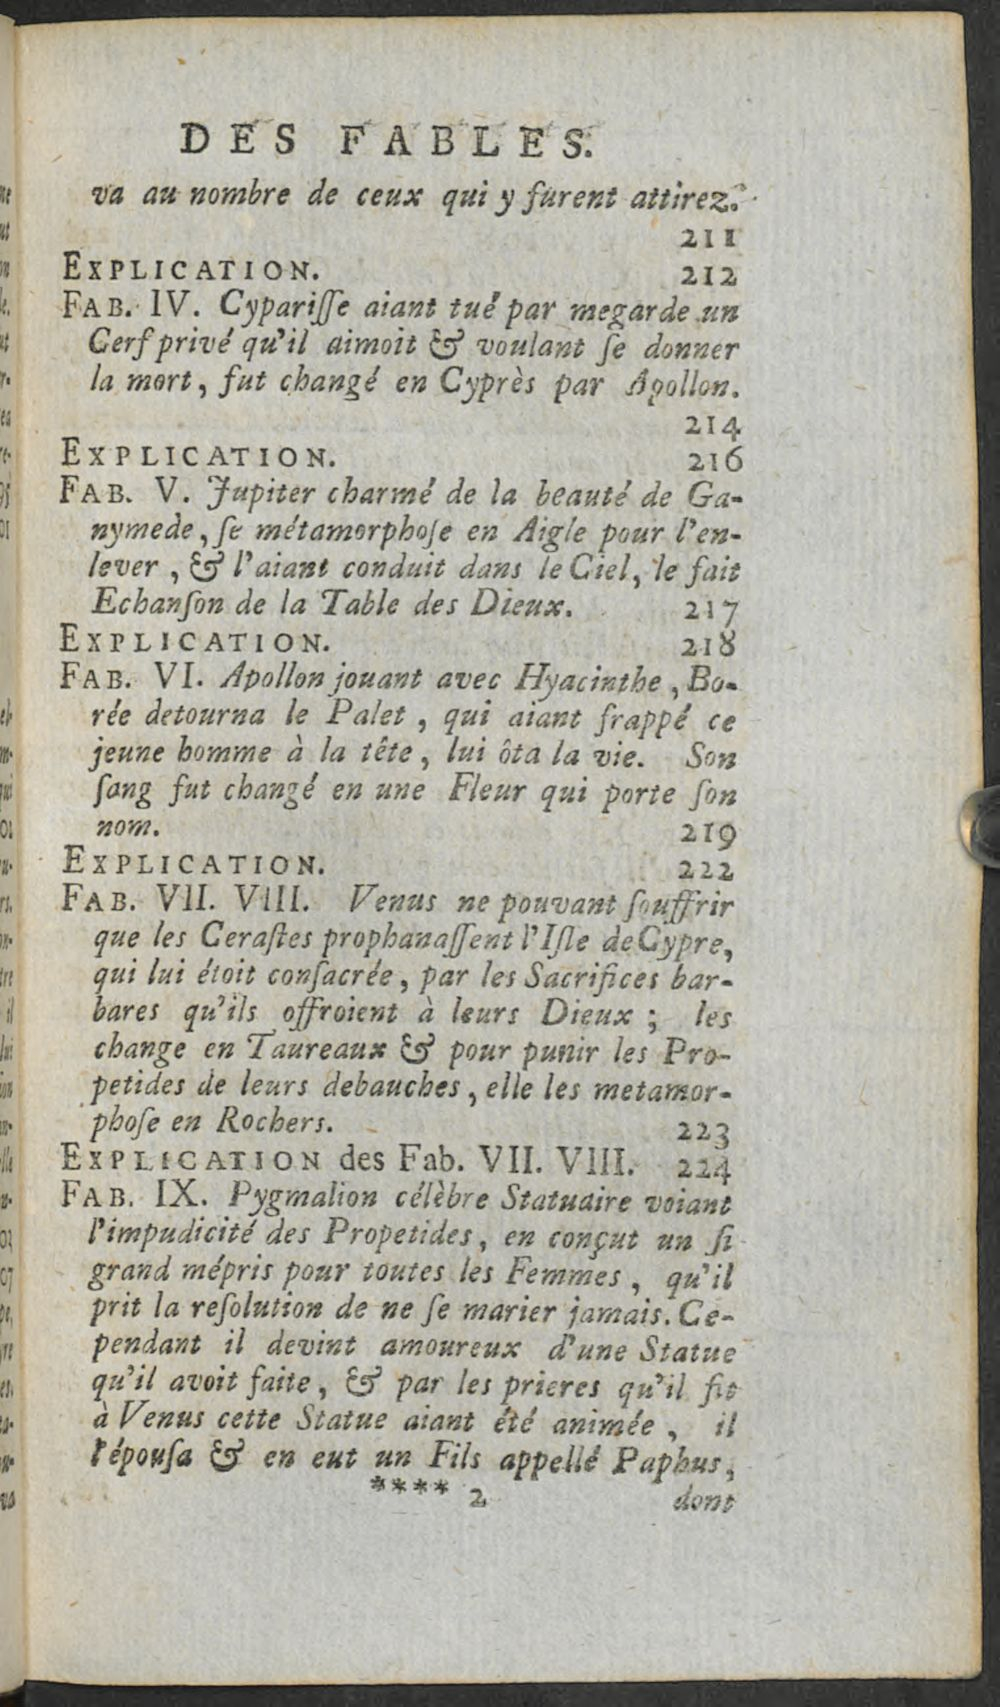 DES FABLES.
va au nombre de ceux qui y furent attirez.
211
EXPLICATION. 212
FAB. IV. Cypariſſe aiant tué par megarde un
Cerf privé qu'il aimoit & voulant ſe donner
la mort, fut changé en Cyprès par Apollon.
214
EXPLICATION. 216
FAB. V. Jupiter charmé de la beauté de Ga-
nymede, ſe métamorphoſe en Aigle pour l'en-
lever, & l'aiant conduit dans le Ciel, le fait
Echanſon de la Table des Dieux. 217
EXPLICATION. 218
FAB. VI. Apollon jouant avec Hyacinthe, Bo-
rée detourna le Palet, qui aiant frappé ce
jeune homme à la tête, lui ôta la vie. Son
ſang fut changé en une Fleur qui porte ſon
nom. 219
EXPLICATION. 222
FAB. VII. VIII. Venus ne pouvant ſouffrir
que les Ceraſtes prophanaſſent l'Iſle de Cypre,
qui lui étoit conſacrée, par les Sacrifices bar-
bares qu'ils offroient à leurs Dieux; les
change en Taureaux & pour punir les Pro-
petides de leurs debauches, elle les metamor-
phoſe en Rochers. 223
EXPLICATION des Fab. VII. VIII. 224
FAB. IX. Pygmalion célèbre Statuaire voiant
l'impudicité des Propetides, en conçut un ſi
grand mépris pour toutes les Femmes, qu'il
prit la reſolution de ne ſe marier jamais. Ce-
pendant il devint amoureux d'une Statue
qu'il avoit faite, & par les prieres qu'il fit
à Venus cette Statue aiant été animée, il
l'épouſa & en eut un Fils appellé Paphus,
**** 2 dont